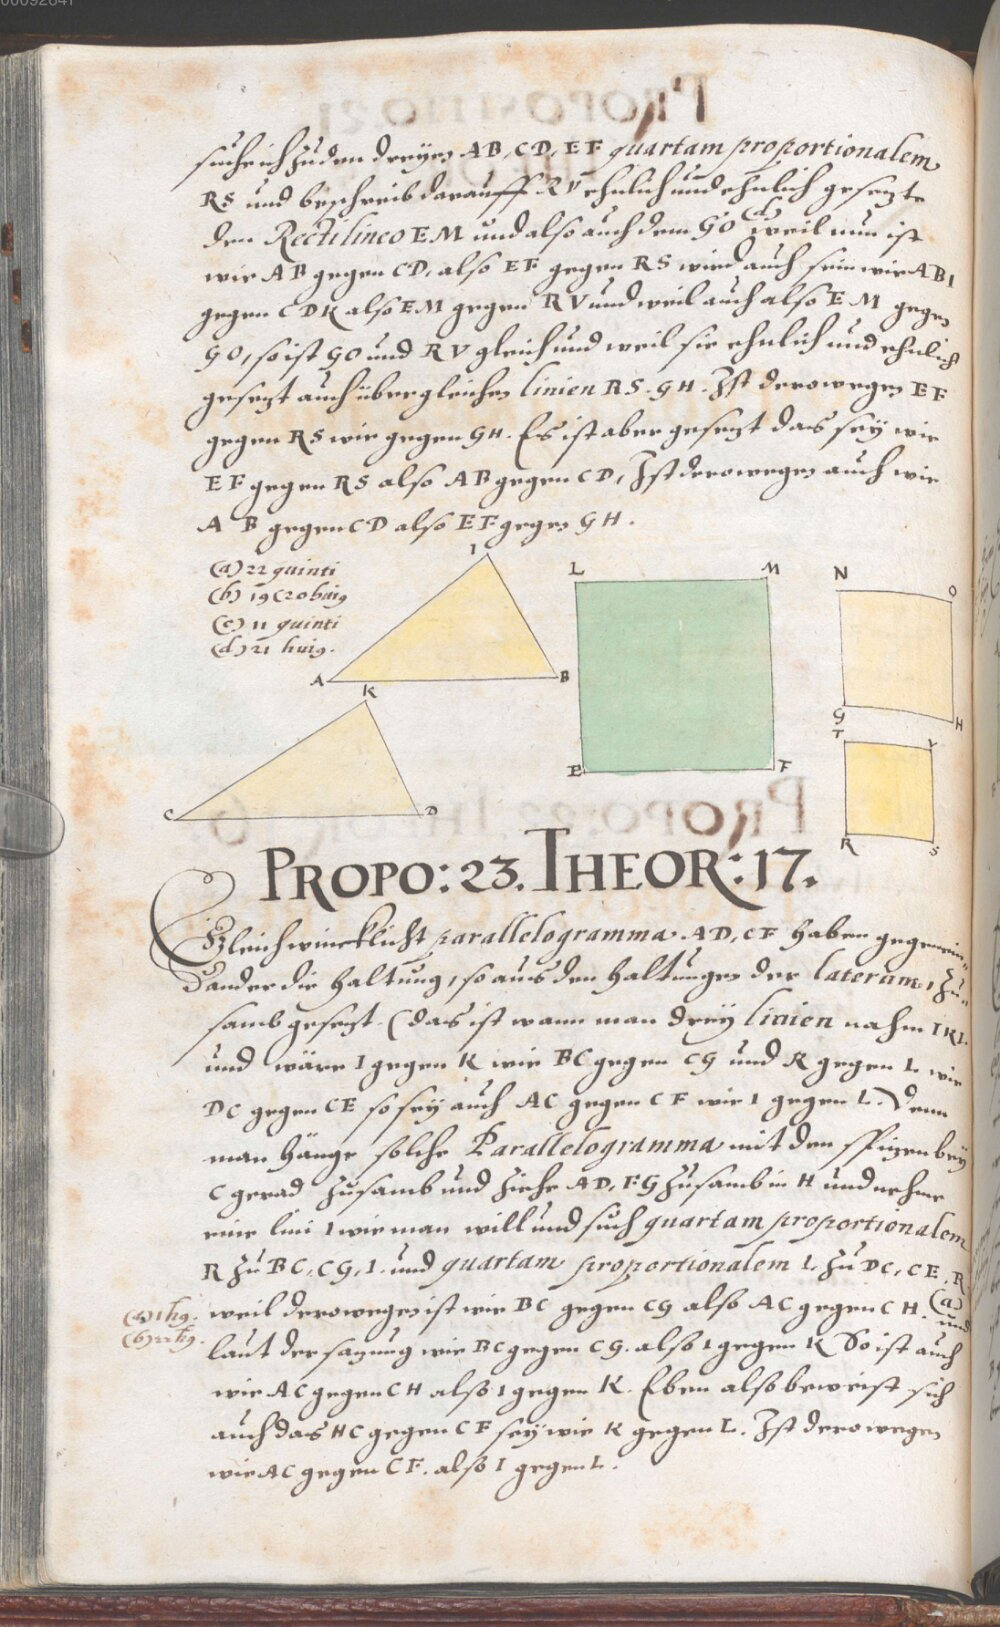 00092641
suche ich zu den dreÿen AB, CD, EF quartam proportionalem
RS und beschreib darauff RV ehnlich und ehnlich gesetzt
den Rectilineo EM und also auch dem GO (d) weil nun ist
wie AB gegen CD, also EF gegen RS wird auch sein wie ABI
gegen CDK also EM gegen RV und weil auch also EM gegen
GO, so ist GO und RV gleich und weil sie ehnlich und ehnlich
gesetzt auch über gleichen linien RS. GH. Ist derowegen EF
gegen RS wie gegen GH. Es ist aber gesetzt das seÿ wie
EF gegen RS also AB gegen CD, Ist derowegen auch wie
AB gegen CD also EF gegen GH.
(a) 22 quinti
(b) 19 (20 huig
(c) 11 quinti
(d) 21 huig.
I
A
B
K
C
D
L
M
E
F
N
O
G
H
T
V
R
S
PROPO: 23. THEOR: 17.
Gleichwincklicht parallelogramma AD, CF haben gegen ein-
ander die haltung, so aus den haltungen der laterum, zu-
samb gesetzt. (das ist wann man dreÿ linien nahm IKL
und wäre I gegen K wie BC gegen CG und K gegen L wie
DC gegen CE so seÿ auch AC gegen CF wie I gegen L.) Denn
man hänge solche Parallelogramma mit den spitzen beÿ
C gerad zusamb und ziehe AD, FG zusamb in H und nehme
eine lini I wie man will und such quartam proportionalem
K zu BC, CG, I. und quartam proportionalem L zu DC, CE, K
(a) 1 hg. weil derowegen ist wie BC gegen CG also AC gegen CH. (a) und
(b) 22 hg. laut der satzung wie BC gegen CG. also I gegen K So ist auch
wie AC gegen CH also I gegen K. Eben also beweist sich
auch das HC gegen CF seÿ wie K gegen L. Ist derowegen
wie AC gegen CF. also I gegen L.